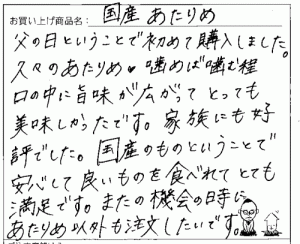 お買い上げ商品名： 国産 あたりめ
父の日ということで初めて購入しました。
久々のあたりめ♥噛めば噛む程
口の中に旨味が広がって とっても
美味しかったです。家族にも好
評でした。国産のものということで
安心して良いものを食べれてとても
満足です。またの機会の時に
あたりめ以外も注文したいです。